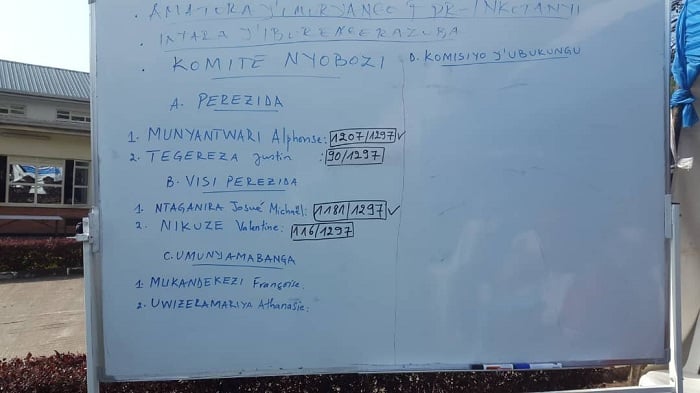 AMATORA Y'UMURYANGO FPR-INKOTANYI
INTARA Y'IBURENGERAZUBA
KOMITE NYOBOZI
A. PEREZIDA
1. MUNYANTWARI Alphonse: 1207/1297 ✓
2. TEGEREZA Justin : 90/1297
B. VISI PEREZIDA
1. NTAGANIRA Josué Michaël: 1181/1297 ✓
2. NIKUZE Valentine: 116/1297
C. UMUNYAMABANGA
1. MUKANDEKEZI Françoise.
2. UWIZERAMARIYA Athanasie:
D. KOMISIYO Y'UBUKUNGU